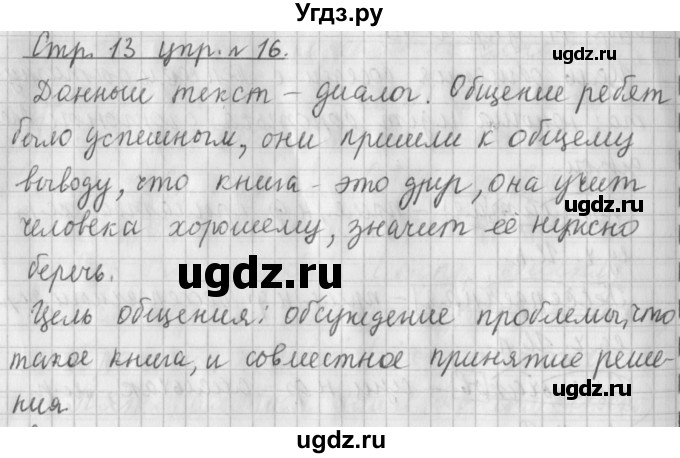 Угдз.ру
Стр. 13 упр. № 16.
ugdz.ru
Данный текст – диалог. Общение ребят
было успешным, они пришли к общему
ugdz.ru
выводу, что книга - это друг, она учит
ugdz.ru
человека хорошему, значит её нужно
беречь.
ugdz.ru
Цель общения: обсуждение проблемы, что
такое книга, и совместное принятие реше-
ugdz.ru
ния
ugdz.ru